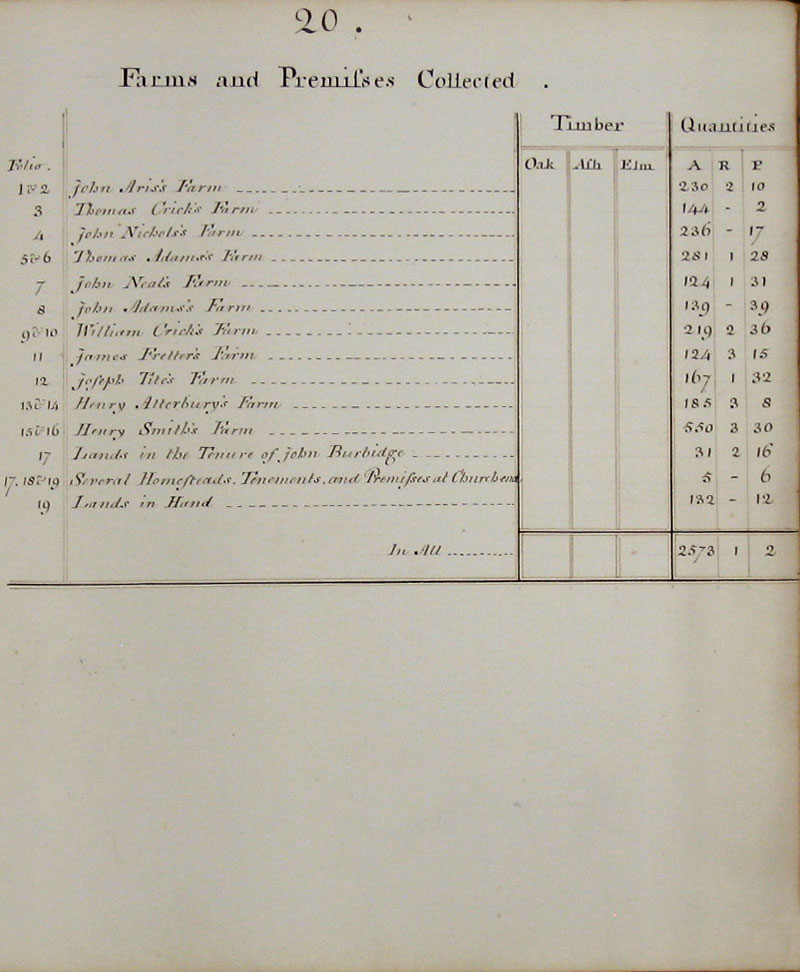 20 .
Farms and Premiſses Collected .
Timber Quantities
Folio . Oak Aſh Elm A R P
1 & 2 John Aris's Farm 230 2 10
3 Thomas Crick's Farm 144 - 2
4 John Nichols's Farm 236 - 17
5 & 6 Thomas Adams's Farm 281 1 28
7 John Neal's Farm 124 1 31
8 John Adams's Farm 139 - 39
9 & 10 William Crick's Farm 219 2 36
11 James Fretter's Farm 124 3 15
12 Joſeph Tite's Farm 167 1 32
13 & 14 Henry Atterbury's Farm 185 3 8
15 & 16 Henry Smith's Farm 550 3 30
17 Lands in the Tenure of John Burbidge 31 2 16
17, 18 & 19 Several Homeſteads, Tenements, and Premiſses at Churchend 5 - 6
19 Lands in Hand 132 - 12
In All 2573 1 2